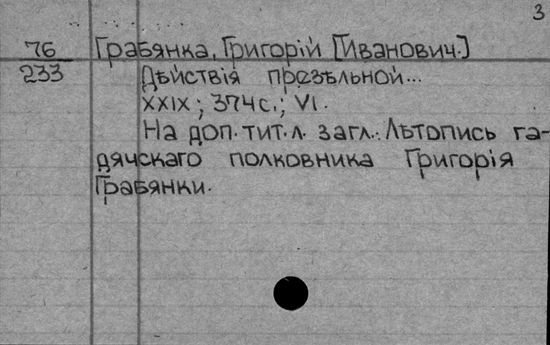 3
76 Грабянка, Григорій [Иванович.]
233 Дѣйствія презѣльной...
XXIX; 374с.; VI.
На доп. тит. л. загл.: Лѣтопись га-
дячскаго полковника Григорія
Грабянки.